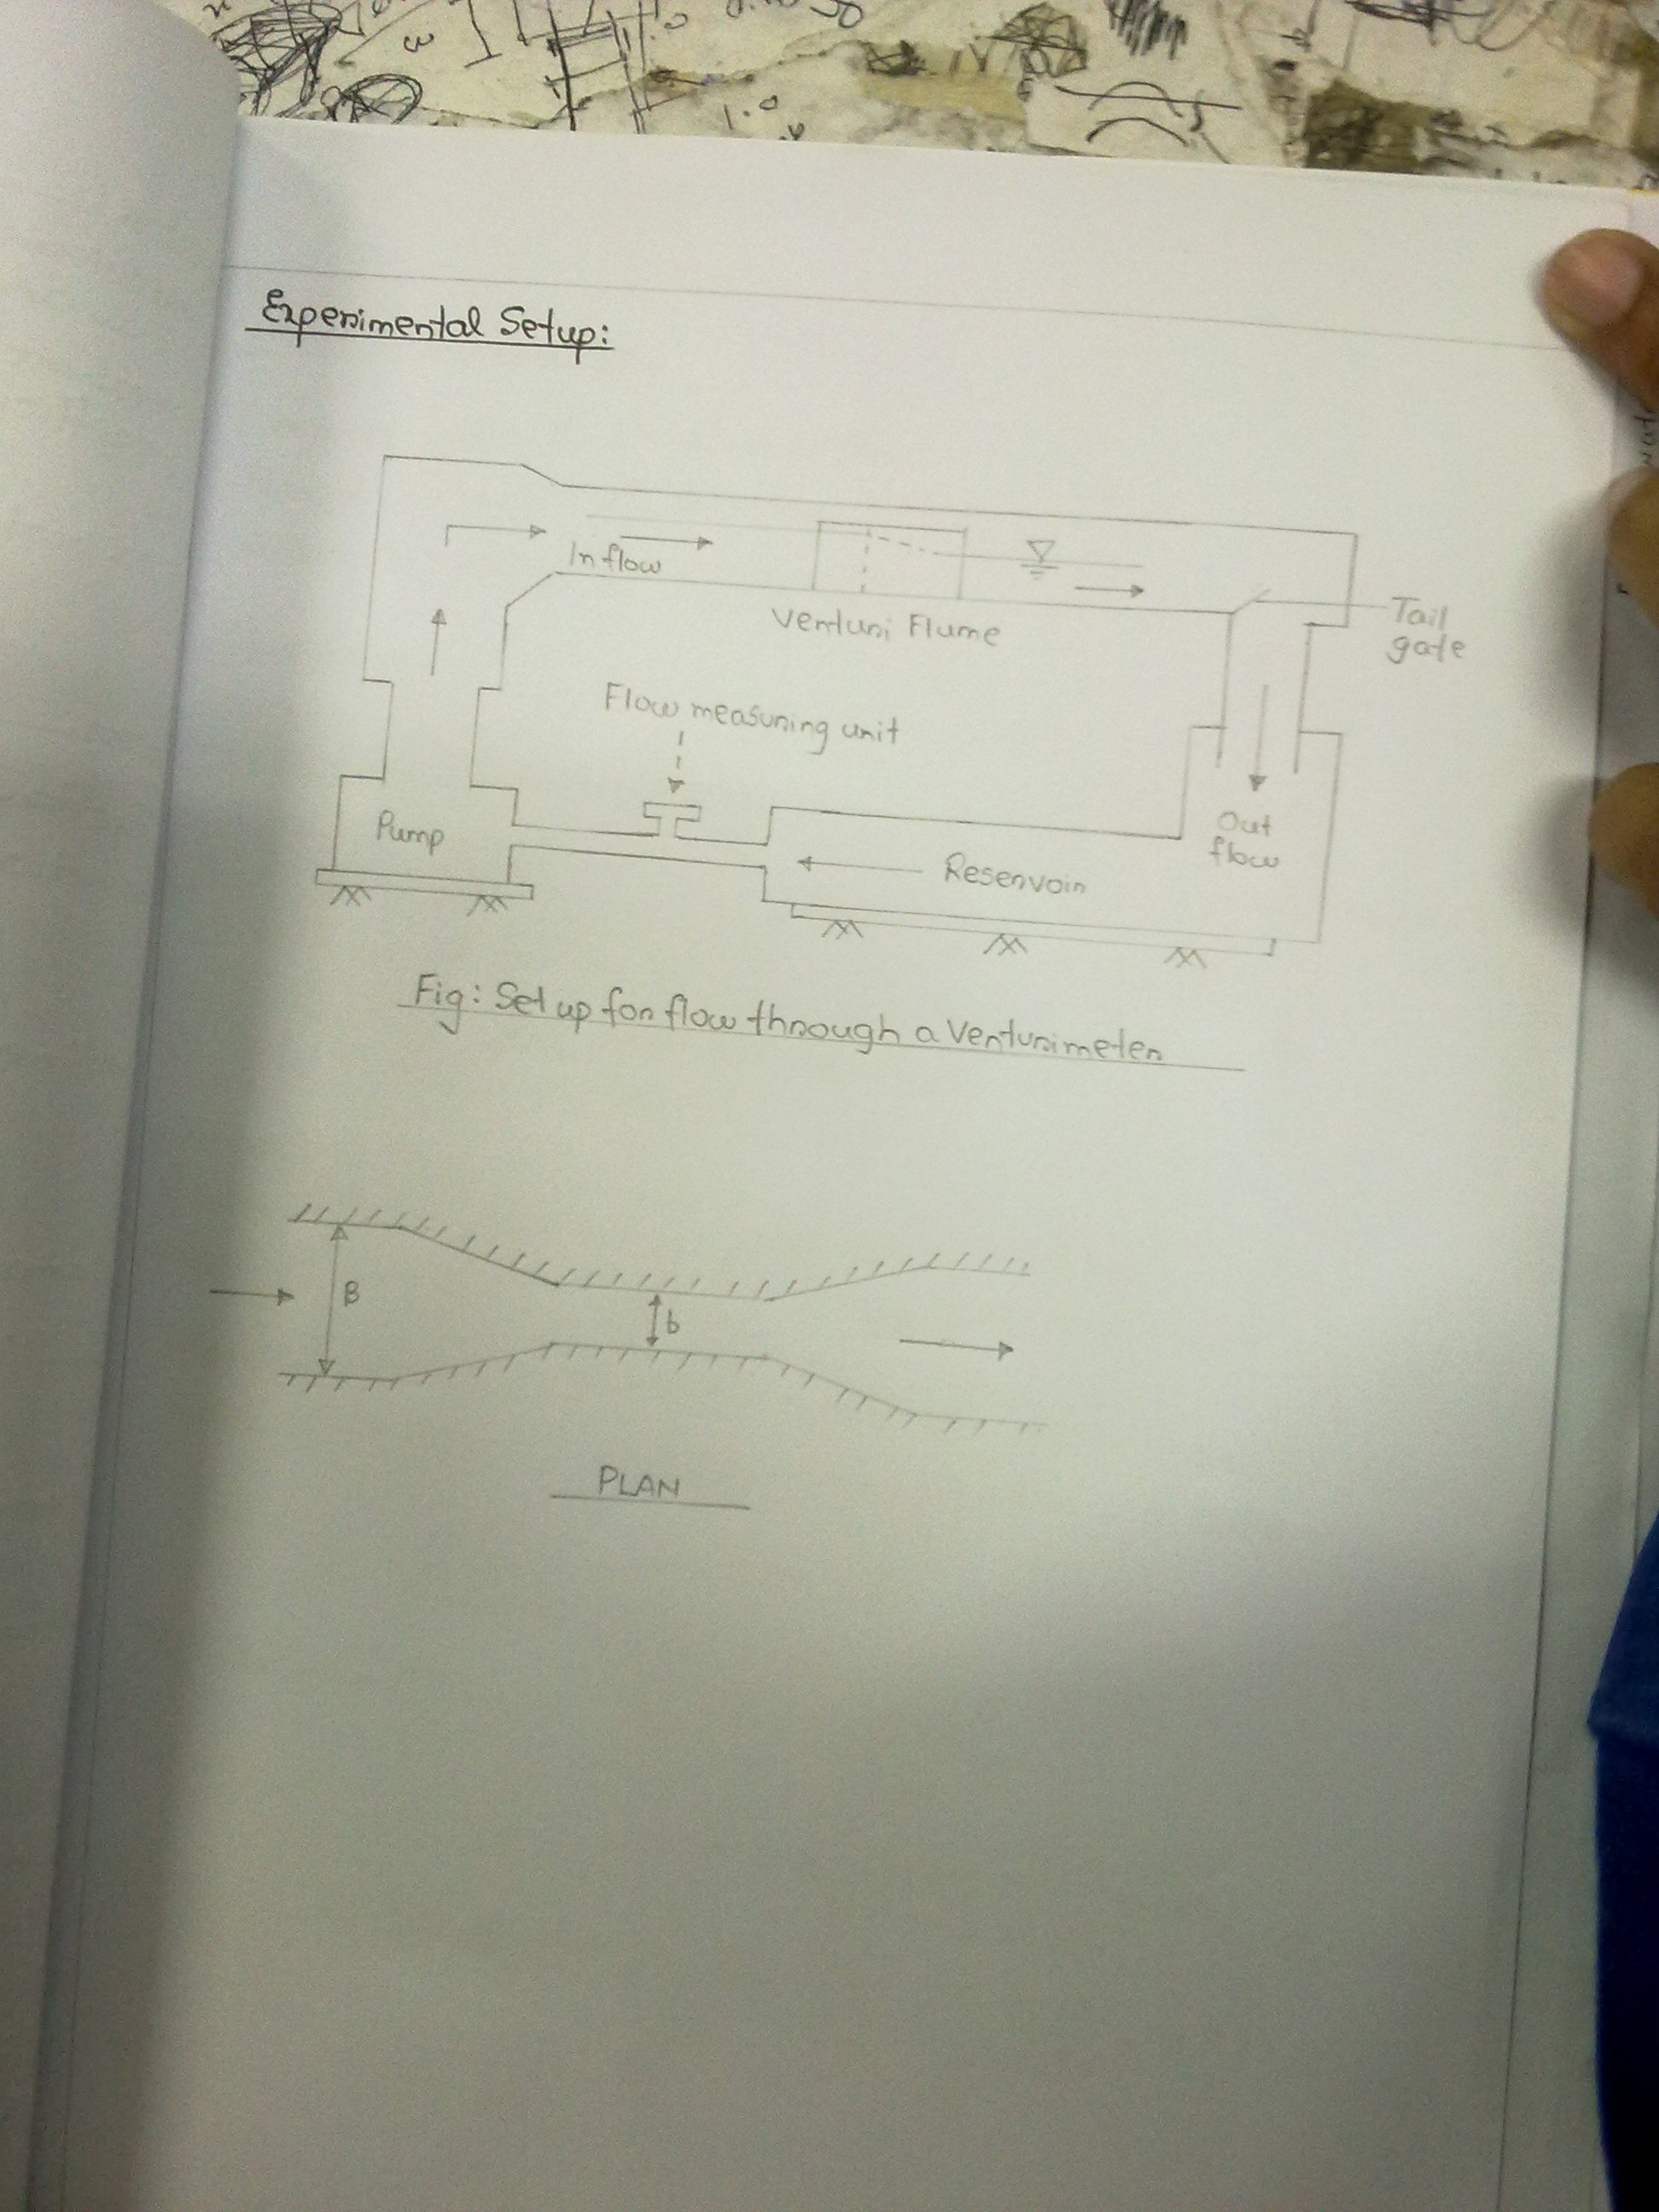 Experimental Setup:
Inflow
Venturi Flume
Tail
gate
Flow measuring unit
Pump
Out
flow
Reservoir
Fig: Set up for flow through a Venturimeter
B
b
PLAN
1.0